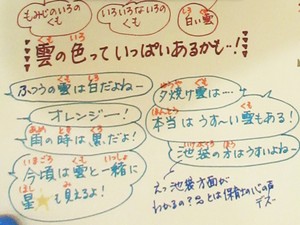 もみじのいろの
くも
いろいろないろの
くも
白い雲
雲の色っていっぱいあるかも…!
ふつうの雲は白だよねー
オレンジー!
雨の時は黒だよ!
今頃は雲と一緒に
星も見えるよ!
夕焼け雲は…
本当はうすーい雲もある!
池袋の方はうすいよねー
えっ池袋方面が
わかるの?とは保育士の心の声
デスー